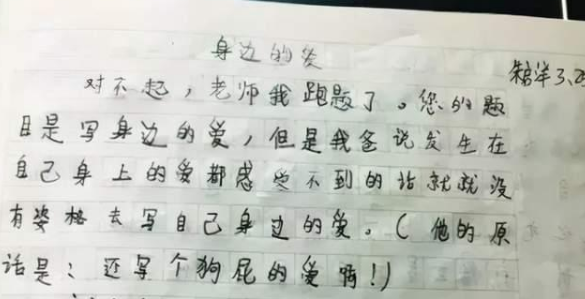 身边的爱
3.2
对不起，老师我跑题了。您的题
目是写身边的爱，但是我爸说发生在
自己身上的爱都感受不到的话就就没
有资格去写自己身边的爱。（他的原
话是：还写个狗屁的爱啊！）